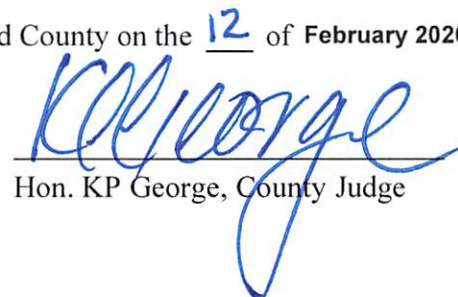 d County on the 12 of February 202
KP George
Hon. KP George, County Judge